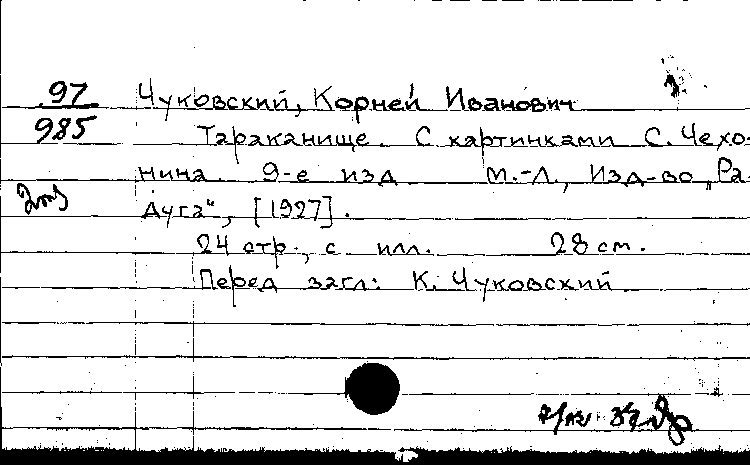 97 Чуковский, Корней Иванович
985 Тараканище. С картинками С. Чехо-
нина. 9-е изд. М.-Л., Изд-во „Ра-
дуга“, [1927].
24 стр., с илл. 28 см.
Перед загл: К. Чуковский